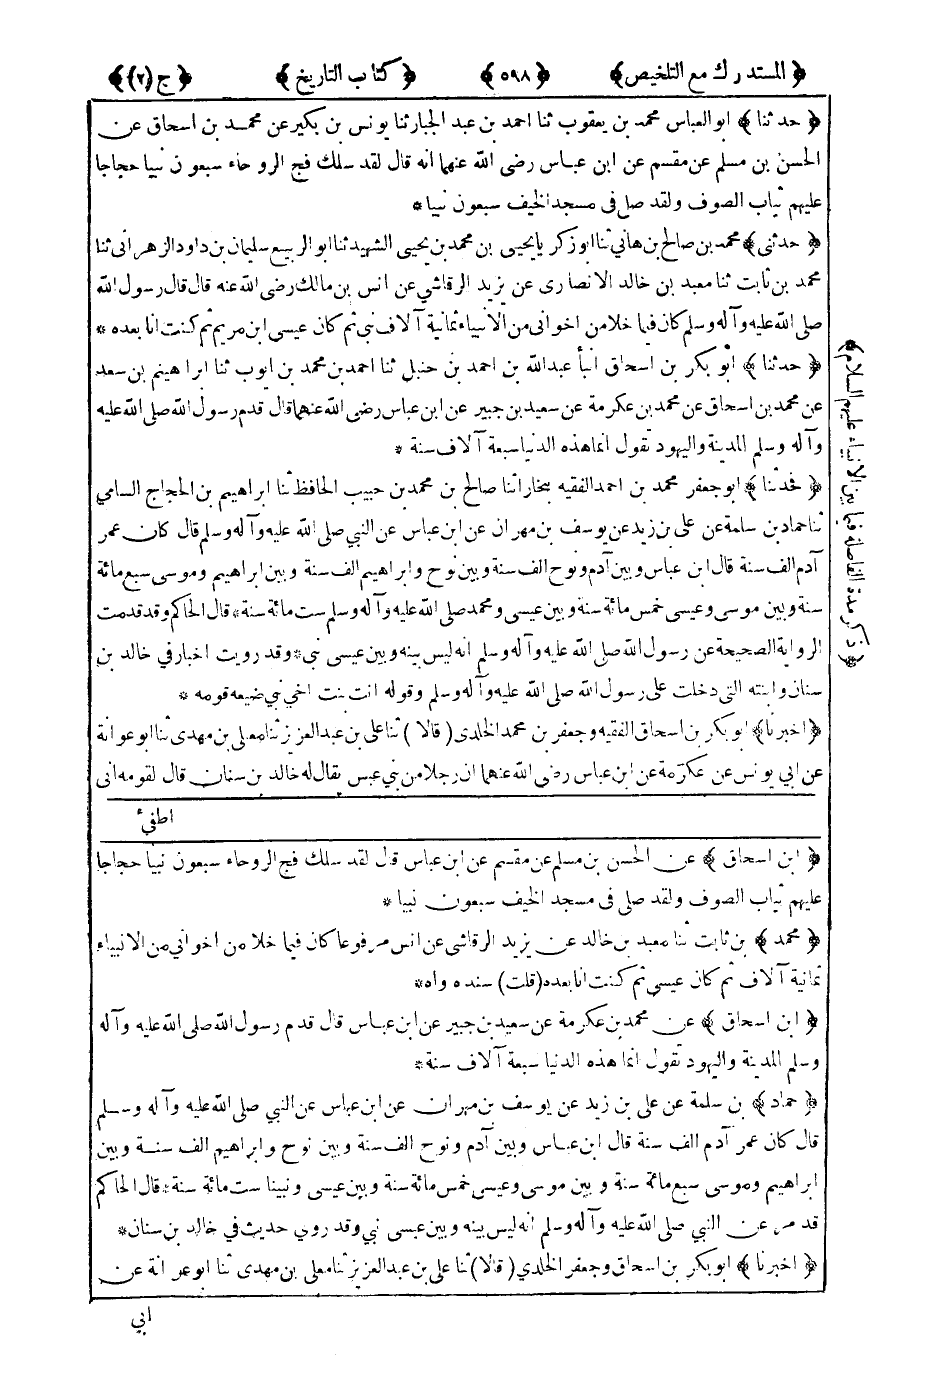 ﴿ المستدرك مع التلخيص ﴾ ﴿ ٥٩٨ ﴾ ﴿ كتاب التاريخ ﴾ ﴿ ج (٢) ﴾
﴿ حدثنا ﴾ ابو العباس محمد بن يعقوب ثنا احمد بن عبد الجبار ثنا يونس بن بكير عن محمد بن اسحاق عن
الحسن بن مسلم عن مقسم عن ابن عباس رضى الله عنهما انه قال لقد سلك فج الروحاء سبعون نبيا حجاجا
عليهم ثياب الصوف ولقد صلى فى مسجد الخيف سبعون نبيا *
﴿ حدثنى ﴾ محمد بن صالح بن هاني ثنا ابو زكريا يحيى بن محمد بن يحيى الشهيد ثنا ابو الربيع سليمان بن داود الزهرانى ثنا
محمد بن ثابت ثنا معبد بن خالد الانصارى عن يزيد الرقاشي عن انس بن مالك رضى الله عنه قال قال رسول الله
صلى الله عليه وآله وسلم كان فيما خلا من اخوانى من الانبياء ثمانية آلاف نبي ثم كان عيسى ابن مريم ثم كنت انا بعده *
﴿ حدثنا ﴾ ابو بكر بن اسحاق انبأ عبدالله بن احمد بن حنبل ثنا احمد بن محمد بن ايوب ثنا ابراهيم بن سعد
عن محمد بن اسحاق عن محمد بن عكرمة عن سعيد بن جبير عن ابن عباس رضى الله عنهما قال قدم رسول الله صلى الله عليه
وآله وسلم المدينة واليهود تقول انما هذه الدنيا سبعة آلاف سنة *
﴿ فحدثنا ﴾ ابو جعفر محمد بن احمد الفقيه ببخارا ثنا صالح بن محمد بن حبيب الحافظ ثنا ابراهيم بن الحجاج السامي
ثنا حماد بن سلمة عن على بن زيد عن يوسف بن مهران عن ابن عباس عن النبي صلى الله عليه وآله وسلم قال كان عمر
آدم الف سنة قال ابن عباس وبين آدم ونوح الف سنة وبين نوح وابراهيم الف سنة وبين ابراهيم وموسى سبع مائة
سنة وبين موسى وعيسى خمس مائة سنة وبين عيسى ومحمد صلى الله عليه وآله وسلم ست مائة سنة * قال الحاكم وقد قدمت
الرواية الصحيحة عن رسول الله صلى الله عليه وآله وسلم انه ليس بينه وبين عيسى نبي * وقد رويت اخبار في خالد بن
سنان وابنته التى دخلت على رسول الله صلى الله عليه وآله وسلم وقوله انت بنت اخي نبي ضيعه قومه *
﴿ اخبرنا ﴾ ابو بكر بن اسحاق الفقيه وجعفر بن محمد الخلدى ( قالا ) ثنا على بن عبد العزيز ثنا معلى بن مهدى ثنا ابو عوانة
عن ابي يونس عن عكرمة عن ابن عباس رضى الله عنهما ان رجلا من بني عبس يقال له خالد بن سنان قال لقومه انى
اطفئ
﴿ ذكر مدة الفاصلة فيما بين الانبياء عليهم السلام ﴾
﴿ ابن اسحاق ﴾ عن الحسن بن مسلم عن مقسم عن ابن عباس قال لقد سلك فج الروحاء سبعون نبيا حجاجا
عليهم ثياب الصوف ولقد صلى فى مسجد الخيف سبعون نبيا *
﴿ محمد ﴾ بن ثابت ثنا معبد بن خالد عن يزيد الرقاشى عن انس مرفوعا كان فيما خلا من اخواني من الانبياء
ثمانية آلاف ثم كان عيسى ثم كنت انا بعده ( قلت ) سنده واه *
﴿ ابن اسحاق ﴾ عن محمد بن عكرمة عن سعيد بن جبير عن ابن عباس قال قدم رسول الله صلى الله عليه وآله
وسلم المدينة واليهود تقول انما هذه الدنيا سبعة آلاف سنة *
﴿ حماد ﴾ بن سلمة عن على بن زيد عن يوسف بن مهران عن ابن عباس عن النبي صلى الله عليه وآله وسلم
قال كان عمر آدم الف سنة قال ابن عباس وبين آدم ونوح الف سنة وبين نوح وابراهيم الف سنة وبين
ابراهيم وموسى سبع مائة سنة وبين موسى وعيسى خمس مائة سنة وبين عيسى ونبينا ست مائة سنة * قال الحاكم
قد مر عن النبي صلى الله عليه وآله وسلم انه ليس بينه وبين عيسى نبي وقد روي حديث في خالد بن سنان *
﴿ اخبرنا ﴾ ابو بكر بن اسحاق وجعفر الخلدي ( قالا ) ثنا على بن عبد العزيز ثنا معلى بن مهدى ثنا ابو عوانة عن
ابي